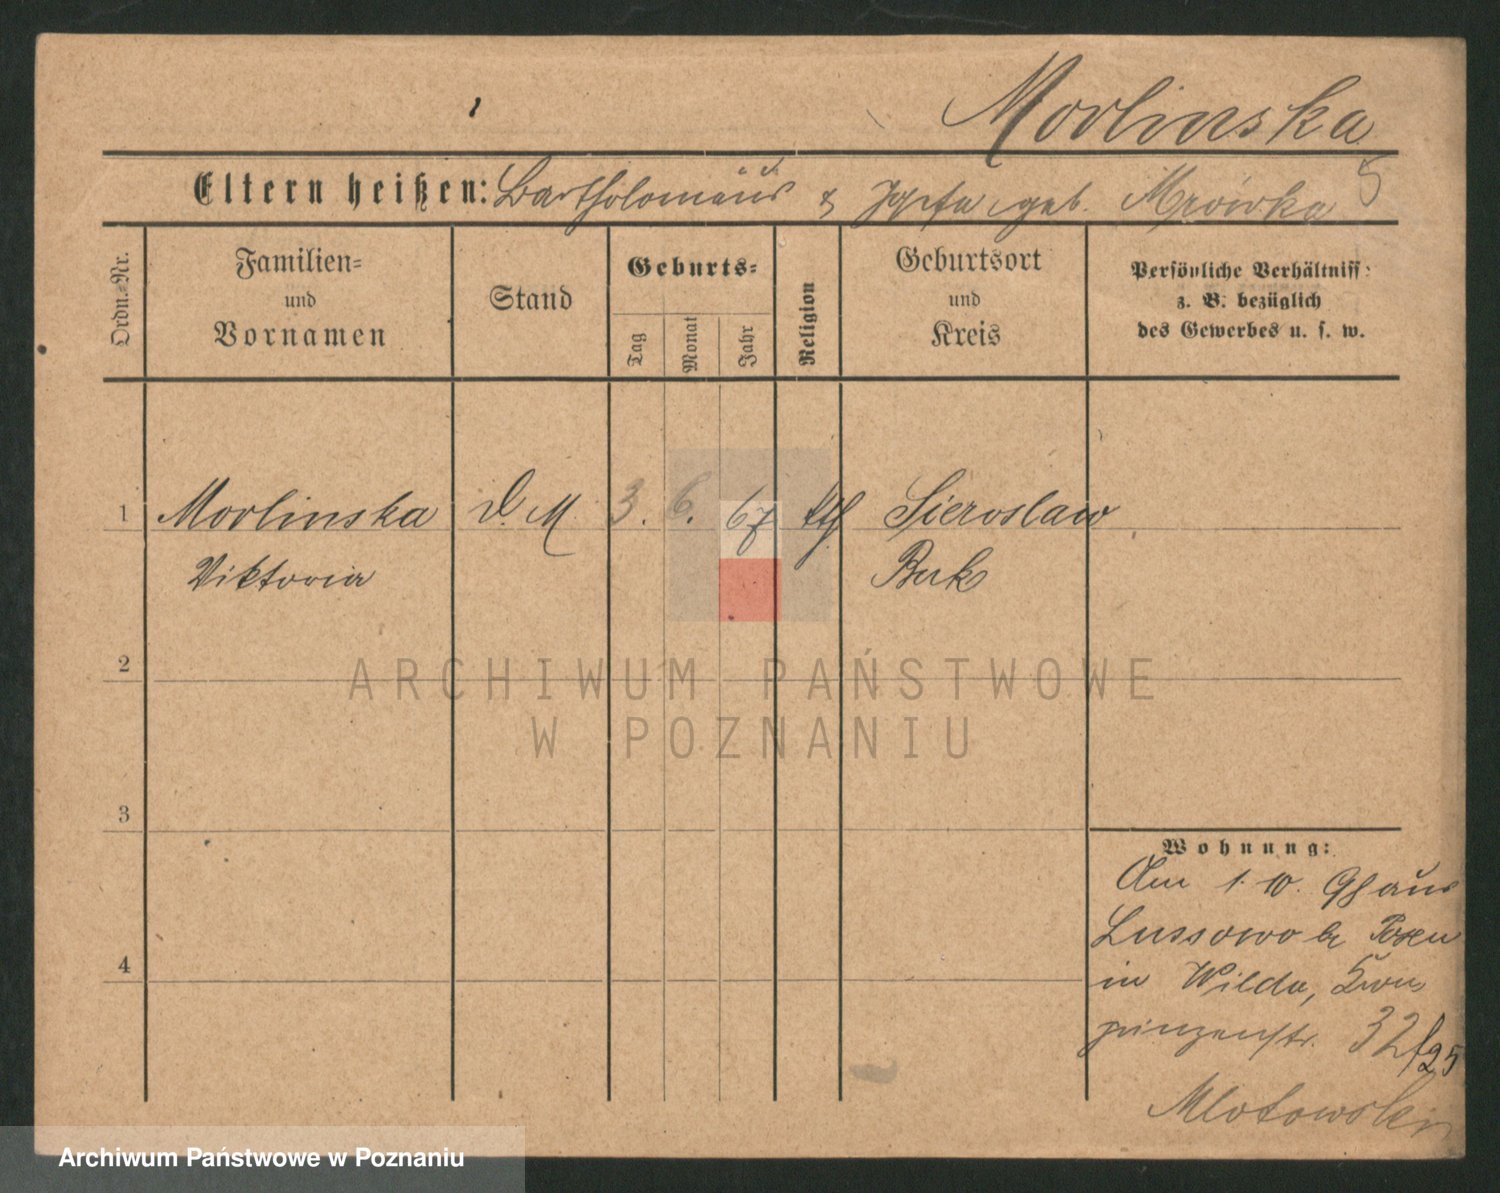 Morlinska
Eltern heißen: Bartholomäus & geb. Mrówka
Ordn.-Nr.
Familien-
und
Vornamen
Stand
Geburts-
Tag
Monat
Jahr
Religion
Geburtsort
und
Kreis
Persönliche Verhältniss:
z. B. bezüglich
des Gewerbes u. s. w.
1 Morlinska D. M. 3. 6. 67 kth Sieroslaw
Viktoria Buk
2
ARCHIWUM PAŃSTWOWE
W POZNANIU
3
Wohnung:
Am 1. 10. 98 aus
Lussowo b Posen
4
in Wilda, Kron
prinzenstr. 32 / 95
Archiwum Państwowe w Poznaniu